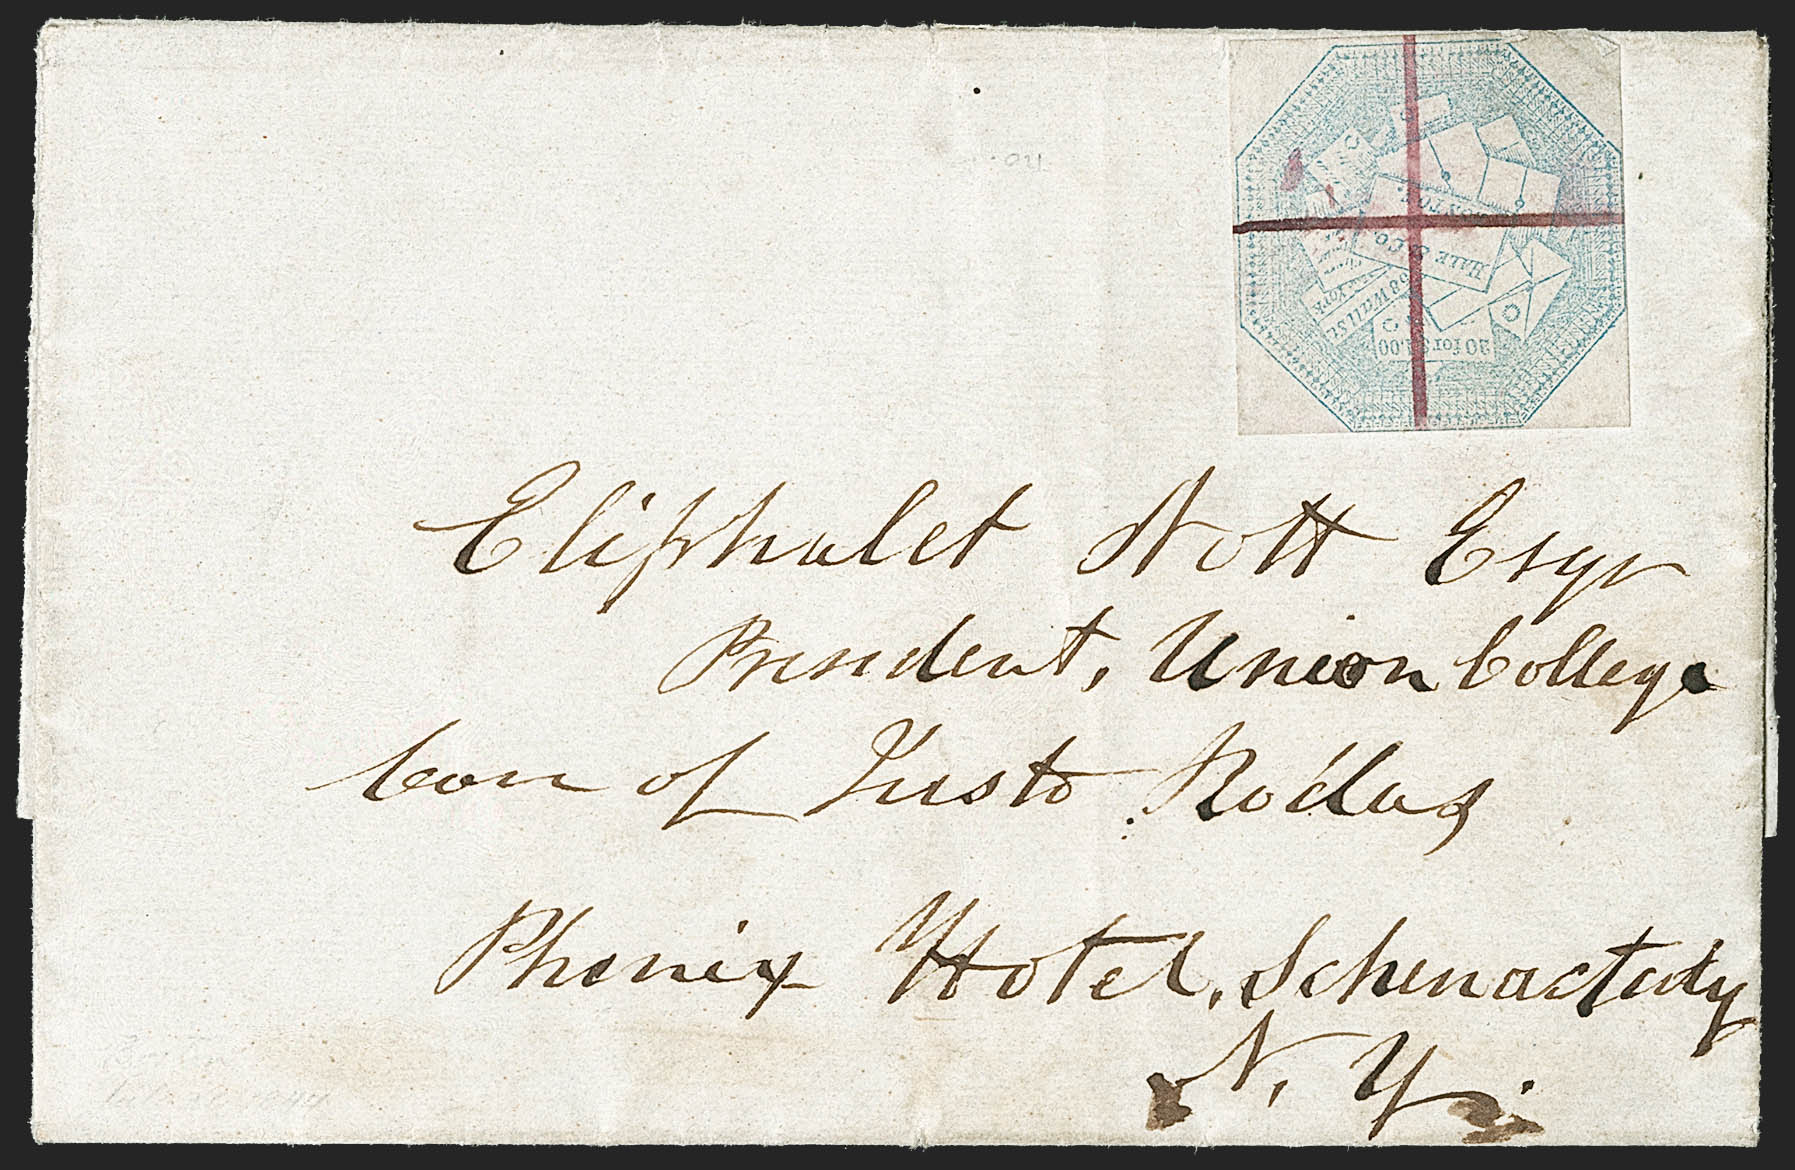 BOSTON
HALE & Co.
58 Wall St.
New York
20 for $1.00
Eliphalet Nott Esqr
President, Union College
Care of Justo Rodas
Phenix Hotel, Schenactady
N. Y.